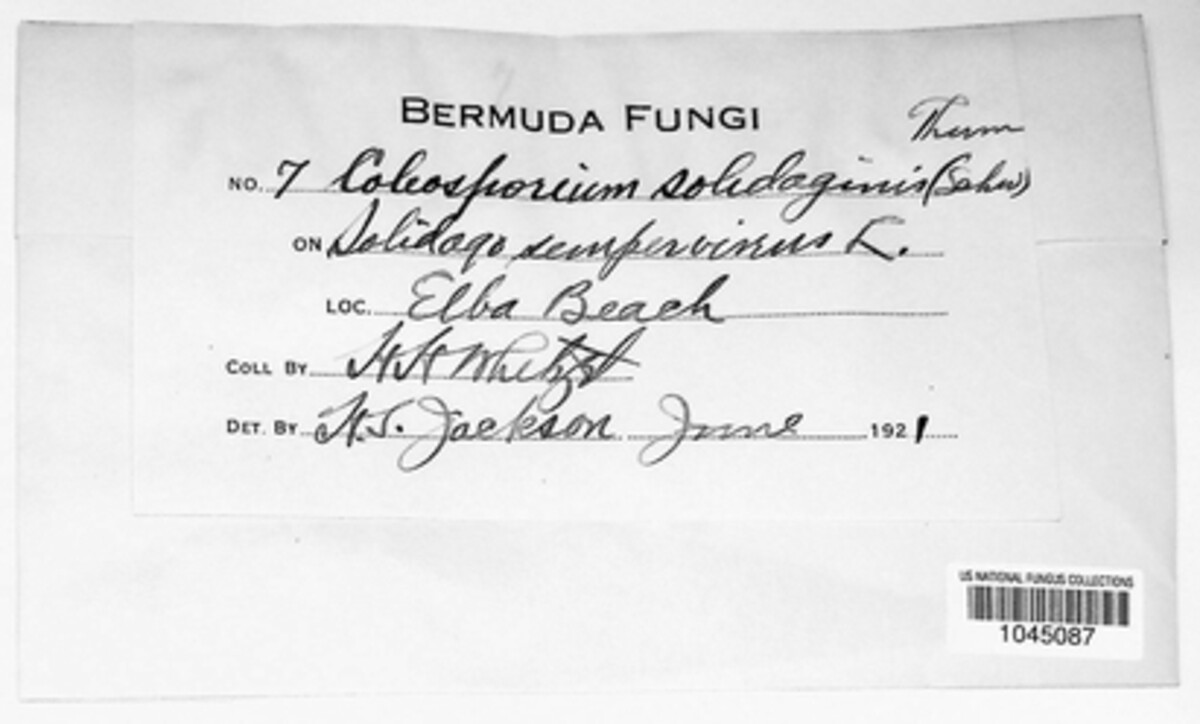 BERMUDA FUNGI
Thüm
NO. 7 Coleosporium solidaginis (Schw)
ON Solidago sempervirens L.
LOC. Elba Beach
COLL BY H H Whetzel
DET. BY H.S. Jackson June 1921
US NATIONAL FUNGUS COLLECTIONS
1045087